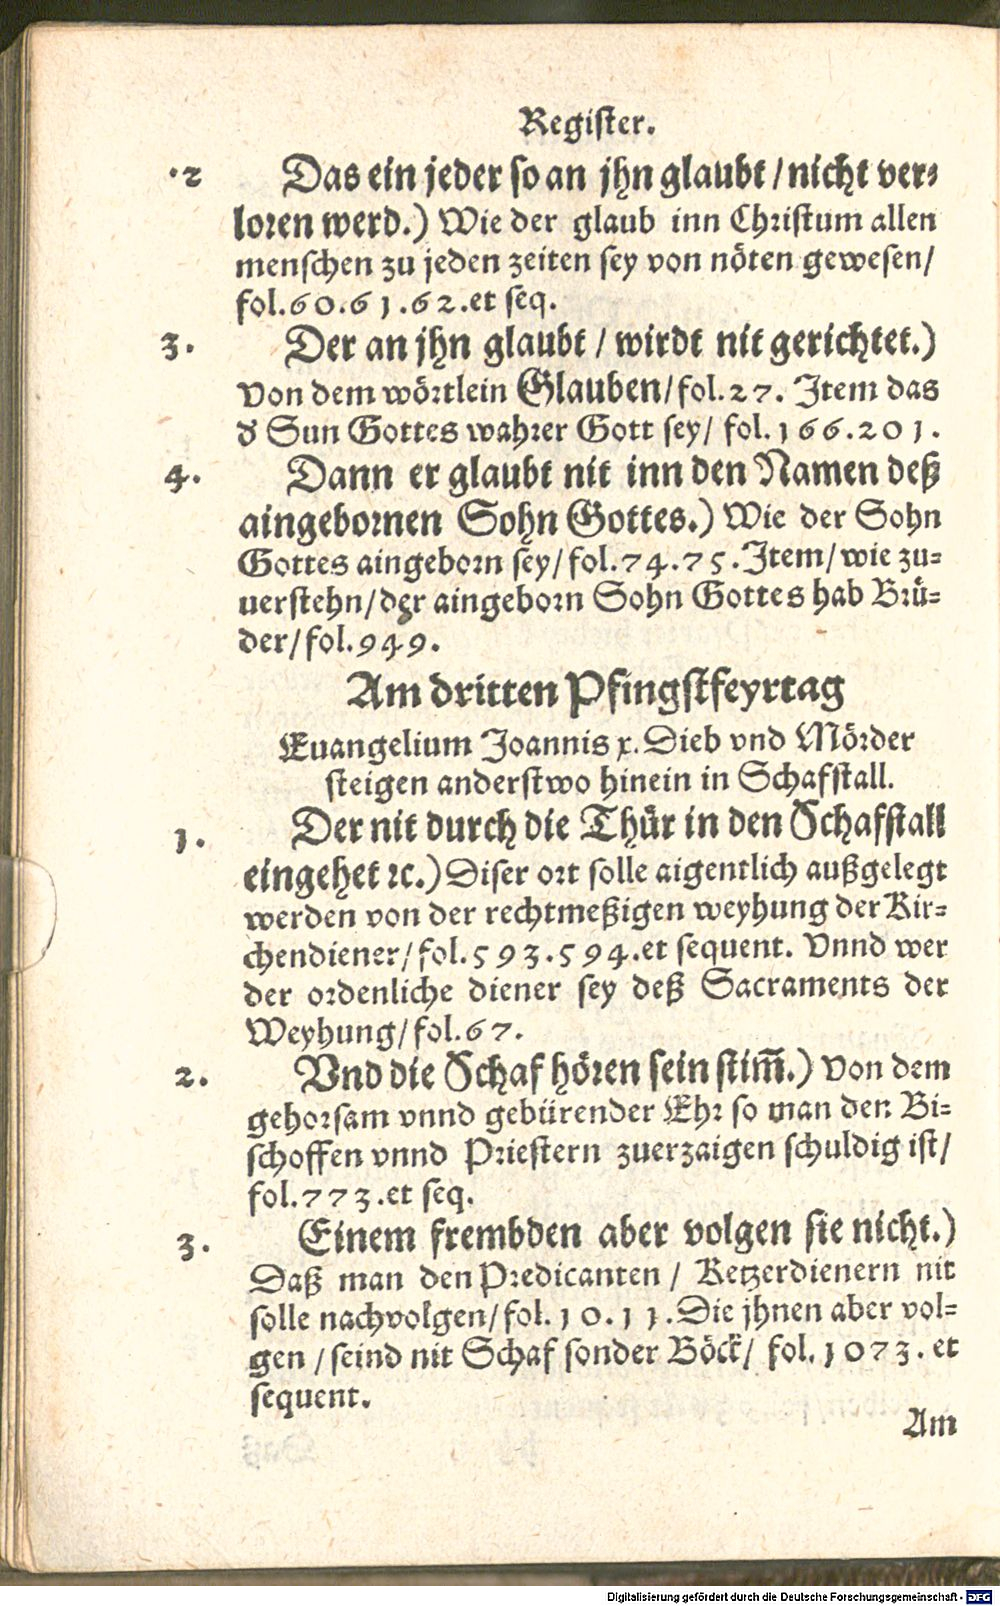 Register.
·2 Das ein jeder so an jhn glaubt / nicht ver⸗
loren werd.) Wie der glaub inn Christum allen
menschen zu jeden zeiten sey von nöten gewesen/
fol.60.61.62.et seq.
3. Der an jhn glaubt / wirdt nit gerichtet.)
Von dem wörtlein Glauben/fol.27. Item das
d' Sun Gottes wahrer Gott sey/ fol.166.201.
4. Dann er glaubt nit inn den Namen deß
aingebornen Sohn Gottes.) Wie der Sohn
Gottes aingeborn sey/fol.74.75.Item/wie zu⸗
uerstehn/der aingeborn Sohn Gottes hab Brü⸗
der/fol.949.
Am dritten Pfingstfeyrtag
Euangelium Joannis x. Dieb vnd Mörder
steigen anderstwo hinein in Schafstall.
1. Der nit durch die Thür in den Schafstall
eingehet ꝛc.) Diser ort solle aigentlich außgelegt
werden von der rechtmeßigen weyhung der Kir⸗
chendiener/fol.593.594.et sequent. Vnnd wer
der ordenliche diener sey deß Sacraments der
Weyhung/fol.67.
2. Vnd die Schaf hören sein stim̃.) Von dem
gehorsam vnnd gebürender Ehr so man den Bi⸗
schoffen vnnd Priestern zuerzaigen schuldig ist/
fol.773.et seq.
3. Einem frembden aber volgen sie nicht.)
Daß man den Predicanten / Ketzerdienern nit
solle nachvolgen/fol.10.11.Die jhnen aber vol⸗
gen /seind nit Schaf sonder Böck/ fol.1073.et
sequent.
Am
Digitalisierung gefördert durch die Deutsche Forschungsgemeinschaft - DFG